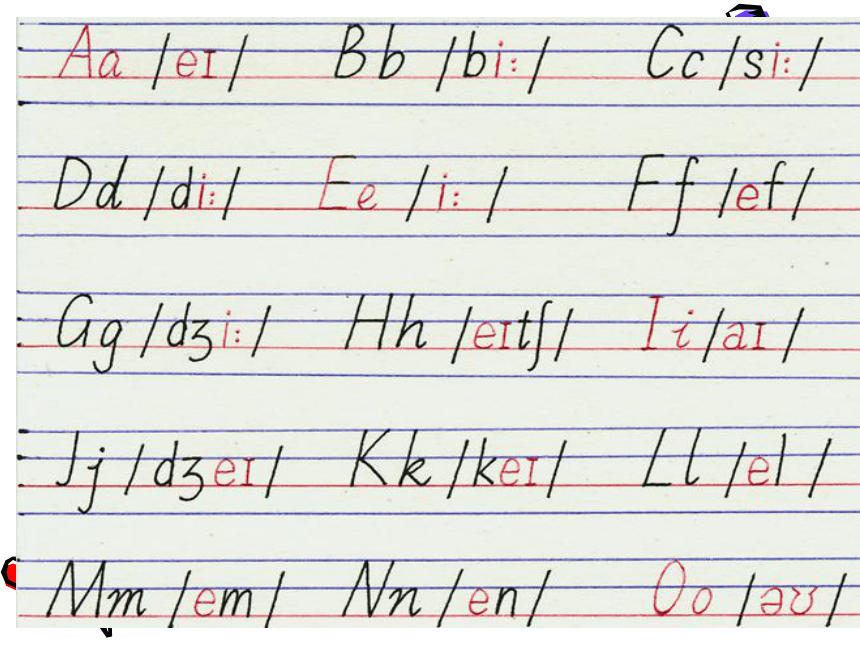 Aa /eɪ/ Bb /bi:/ Cc /si:/
Dd /di:/ Ee /i:/ Ff /ef/
Gg /dʒi:/ Hh /eɪtʃ/ Ii /aɪ/
Jj /dʒeɪ/ Kk /keɪ/ Ll /el/
Mm /em/ Nn /en/ Oo /əʊ/